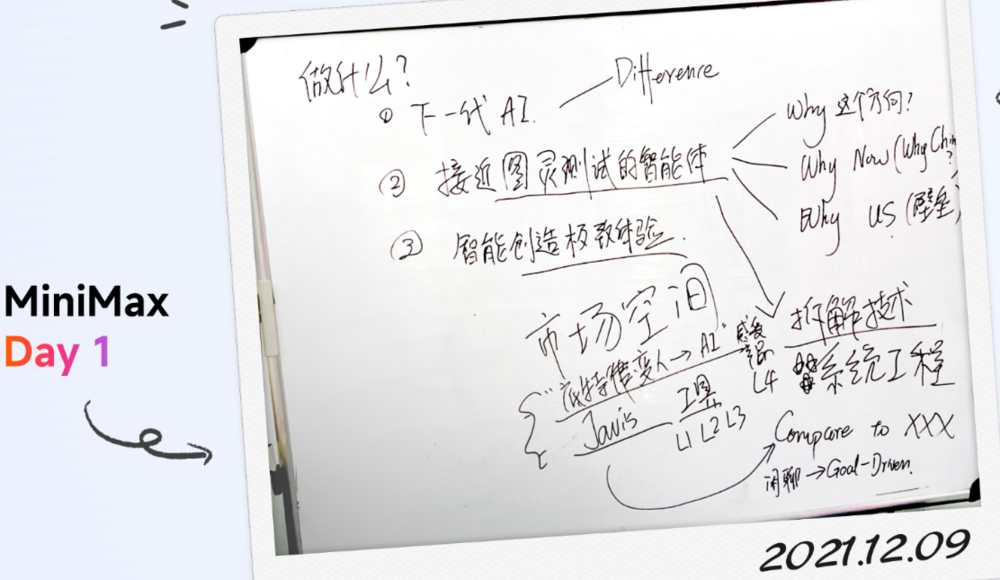 MiniMax
Day 1
做什么?
① 下一代 AI. Difference
② 接近图灵测试的智能体
Why 这个方向?
Why Now (Why Chin
?
Why US (壁垒)
③ 智能创造极致体验.
市场空间
AI"
L4
Javis 工具
L1 L2 L3
拆解技术
系统工程
Compare to XXX
闲聊→Goal-Driven.
2021.12.09